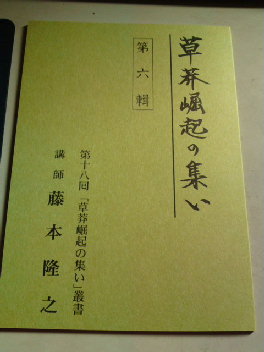 草莽崛起の集い
第六輯
第十八回「草莽崛起の集い」叢書
講師 藤本隆之